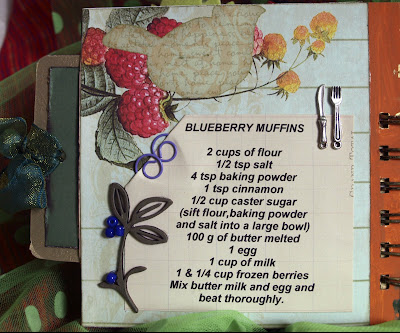 BLUEBERRY MUFFINS
2 cups of flour
1/2 tsp salt
4 tsp baking powder
1 tsp cinnamon
1/2 cup caster sugar
(sift flour,baking powder
and salt into a large bowl)
100 g of butter melted
1 egg
1 cup of milk
1 & 1/4 cup frozen berries
Mix butter milk and egg and
beat thoroughly.